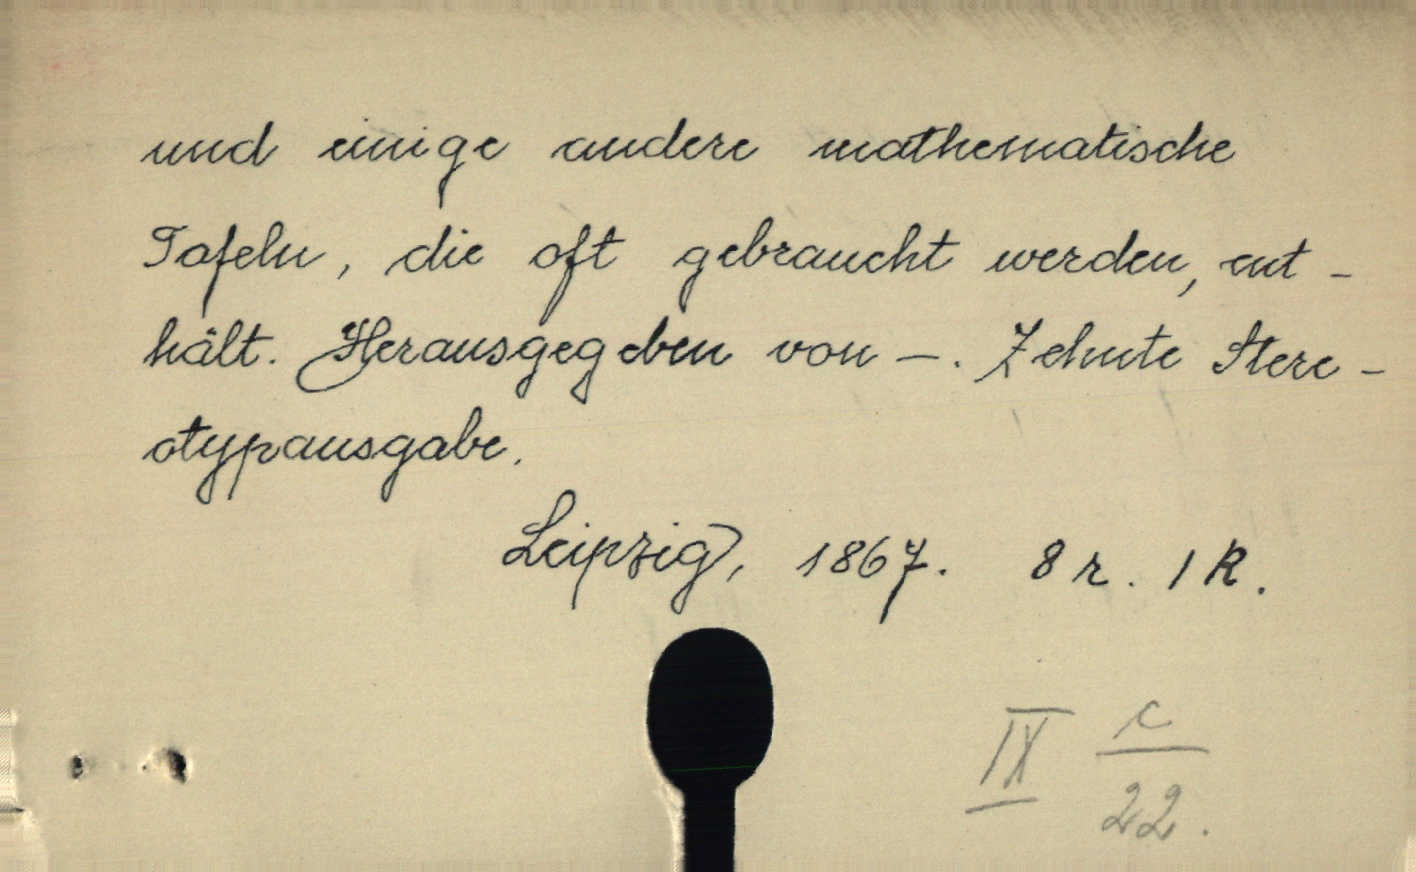 und einige andere mathematische
Tafeln, die oft gebraucht werden, ent-
hält. Herausgegeben von —. Zehnte Stere-
otypausgabe.
Leipzig, 1867. 8 r. 1 K.
IX c/22.